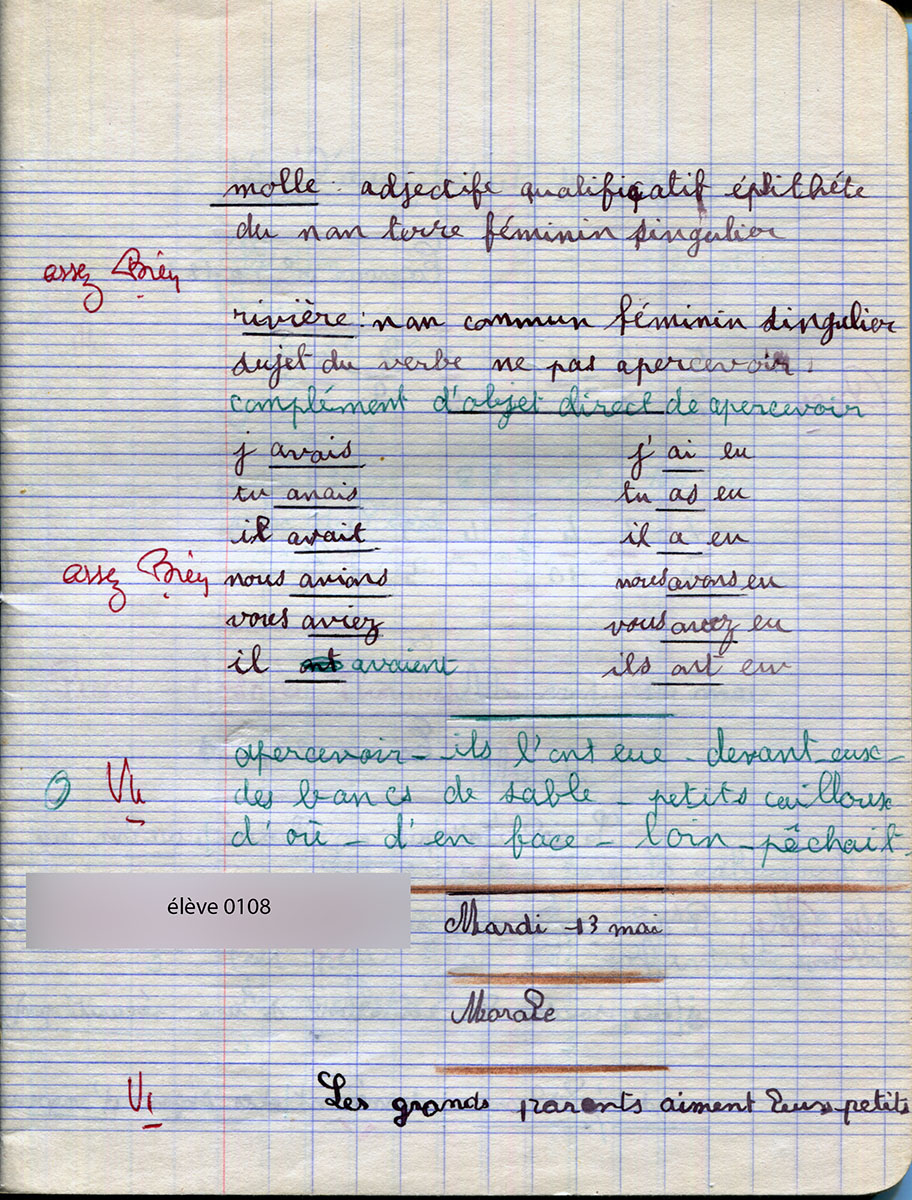 molle : adjectife qualificatif épithéte
du nan terre féminin singulier
assez Bien
rivière : nan commun féminin singulier
sujet du verbe ne pas apercevoir :
complément d'objet direct de apercevoir
j avais j' ai eu
tu avais tu as eu
il avait il a eu
assez Bien nous avions nous avons eu
vous aviez vous avez eu
il avaient ils ont eu
apercevoir - ils l'ont eue - devant eux -
Vu des bancs de sable - petits cailloux
d'où - d'en face - loin - pêchait -
élève 0108
Mardi 13 mai
Morale
Vu Les grands parents aiment leurs petits